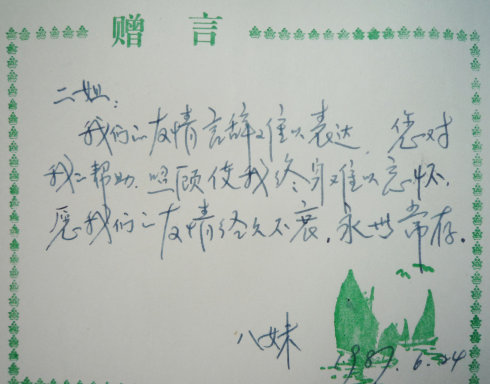 赠言
二姐:
我们的友情言辞难以表达,您对
我的帮助、照顾使我终身难以忘怀,
愿我们的友情经久不衰,永世常存。
八妹
1987.6.24